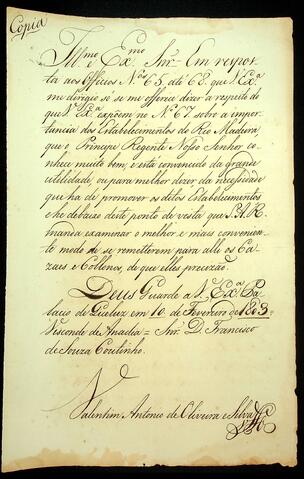 Copia
Illmo e Exmo Snr. Em respos
ta aos Officios Nos 65 até 68. que V. Exa
me dirigio só se me offerece dizer a respeito do
que V. Exa expoem no No 67. sobre a impor
tancia dos Estabelecimentos do Rio Madeira,
que o Principe Regente Nosso Senhor co
nheceu muito bem, e está convencido da grande
utilidade, ou para melhor dizer da necessidade
que ha de promover os ditos Estabelecimentos
e he debaixo deste ponto de vista que S. A. R.
manda examinar o melhor e mais convenien
te modo de se remetterem para alli os Ca
zaes e Collonos, de que elles precizão.
Deus Guarde a V. Exa Pa
lacio de Queluz em 10 de Fevereiro de 1803 =
Visconde de Anadia = Snr. D. Francisco
de Souza Coutinho.
Valentim Antonio de Oliveira e Silva